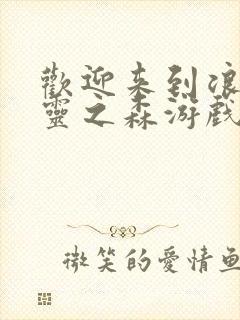 歡迎来到浪
靈之森游戲
微笑的愛情魚